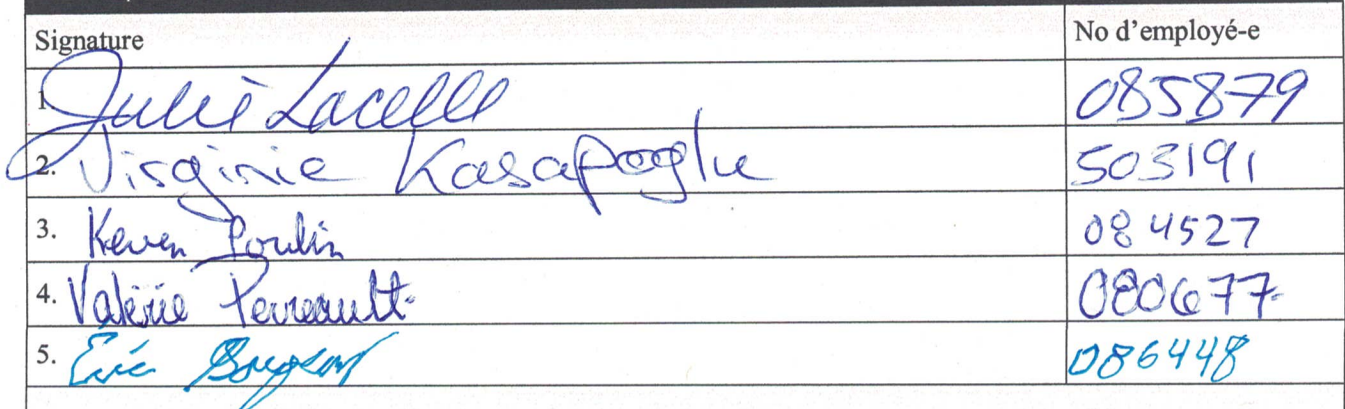 Signature No d'employé-e
1 Julie Lacelle 085879
2. Virginie Kasapoglu 503191
3. Keven Poulin 084527
4. Valérie Perreault 080677
5. Éric 086448